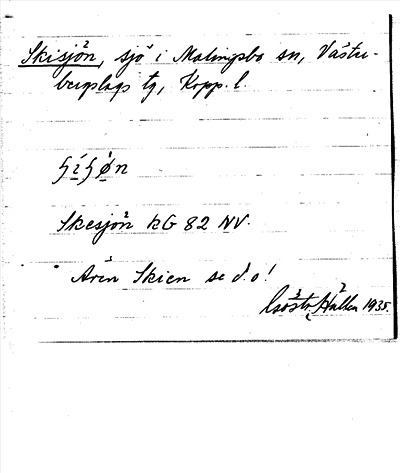 Skisjön, sjö i Malingsbo sn, Väster-
bergslags tg, Kopp. l.
Skesjön KG 82 NV.
Även Skien se d.o!
Gösta Hallen 1935.